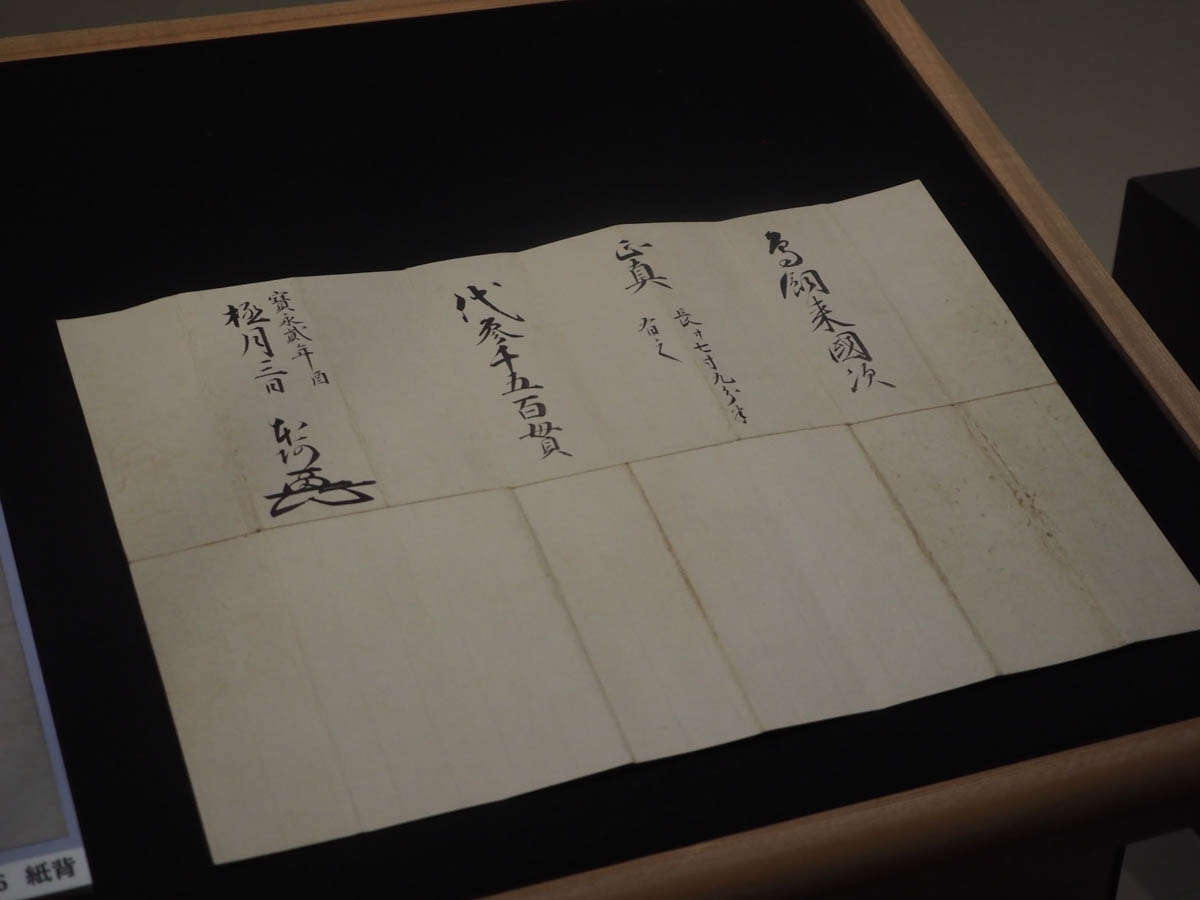 鳥飼来國次
正真
長サ七寸九分半
有之
代参千五百貫
寳永貳年酉
極月三日 本阿
6 紙背